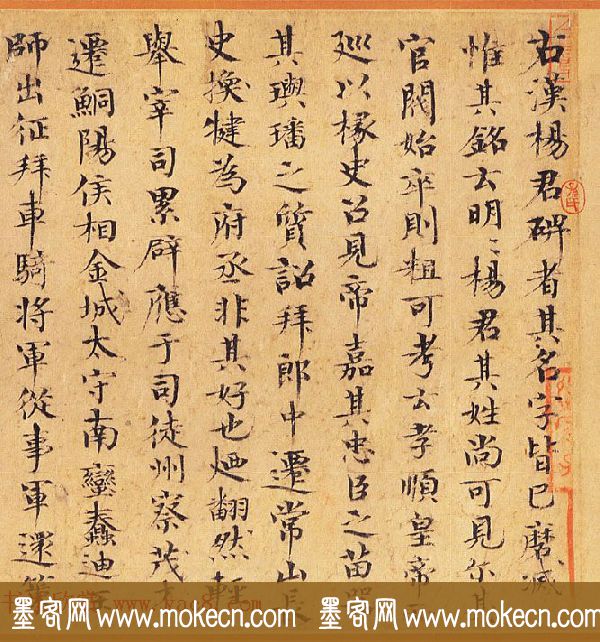 右漢楊君碑者其名字皆已磨滅
惟其銘云明〻楊君其姓尚可見尔其
官閥始卒則粗可考云孝順皇帝
巡以掾史召見帝嘉其忠臣之苗器
其璵璠之質詔拜郎中遷常山長
史換犍為府丞非其好也迺翻然輕
舉宰司累辟應于司徒州察茂才
遷鮦陽侯相金城太守南蠻蠢迪
師出征拜車騎將軍從事軍還
墨客网 www.mokecn.com 墨客网 www.mokecn.com